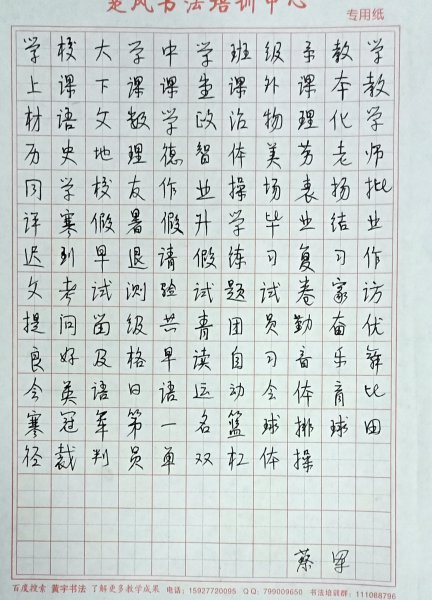 楚风书法培训中心
专用纸
学校大学中学班级系教学
上课下课课堂课外课本教
材语文数学政治物理化学
历史地理德智体美劳老师
同学校友作业操场表扬批
评寒假暑假升学毕业结业
迟到早退请假练习复习作
文考试测验试题试卷家访
提问留级共青团员勤奋优
良好及格早读自习音乐舞
会英语日语运动会体育比
赛冠军第一名篮球排球田
径裁判员单双杠体操
蔡军
百度搜索 黄宇书法 了解更多教学成果 电话：15927720095 QQ：799009650 书法培训群：111088796